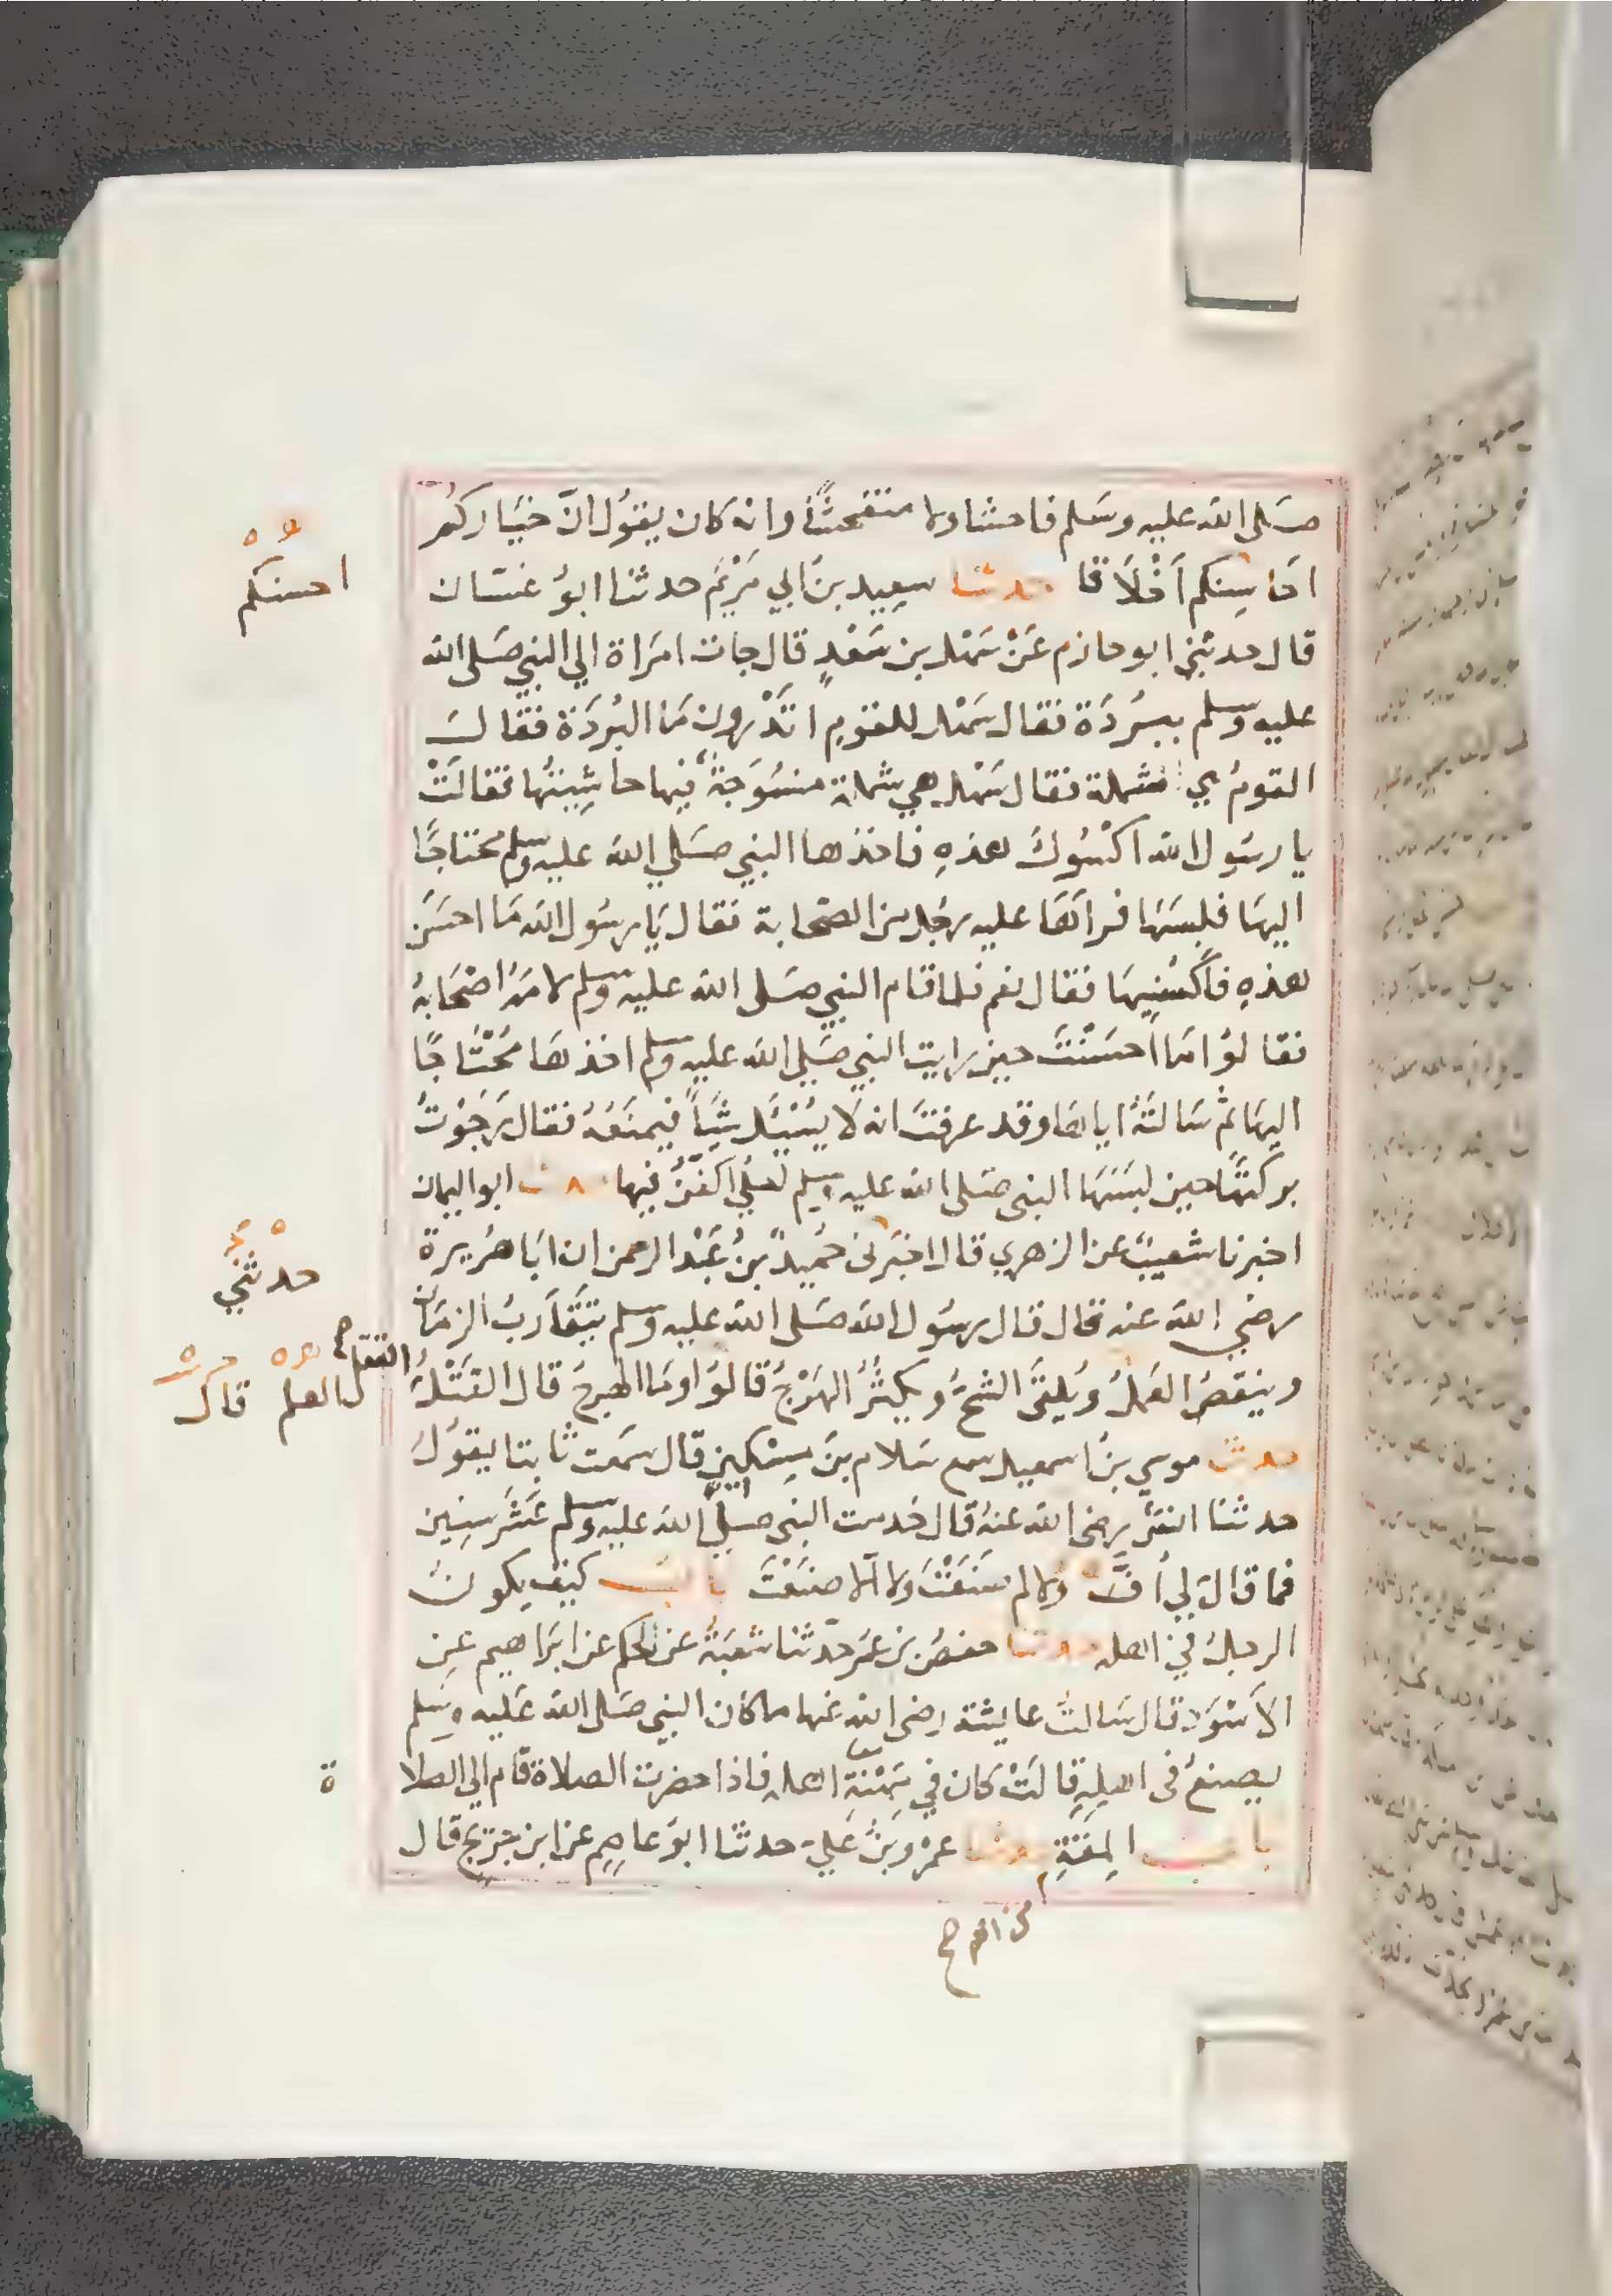 صَلى الله عليه وسَلم فاحشا ولا متفحشًا وانه كان يقولُ انّ خيَاركم
احَاسِنكم اَخْلاَقا حدثنا سعِيد بن ابي مَرْيَم حدثنا ابوُ غسّان
قال حدثني ابو حازم عَنْ سَهْل بن سَعْدٍ قال جات امرَاة الي النبي صَلى الله
عليه وسلم ببُرْدَة فقال سَهْل للقومِ اتَدْرون مَا البُردَة فقالَ
القومُ هي شملة فقال سَهْل هي شملة منسُوَجةٌ فيها حاشِيتُها فقالَتْ
يا رسَول الله اكْسُوكَ هذهِ فاخذها النبي صَلي الله عليه وسلم محتاجًا
اليهَا فلبسَهَا فرآهَا عليه رجُل من الصَحابة فقال يَا رسُول الله مَا احسَن
هذهِ فاَكسُنِيهَا فقال نعم فلما قام النبي صَلى الله عليه وسلم لامَهُ اصْحَابهُ
فقالوُا مَا احسَنْتَ حين رايت النبي صَلي الله عليه وسلم اخذهَا مُحْتَاجًا
اليهَا ثم سَالتَهُ اياهَا وقد عرفتَ انه لاَ يُسْئَل شَيَأً فيمنَعَهُ فقال رَجَوْتُ
بركتَهَا حين لبسَهَا النبي صَلى الله عليه وسلم لعَلي اكفّنُ فيها حدثنا ابو اليمان
اخبرنا شعيبٌ عن الزهري قال اخبَرني حُميدُ بنُ عَبْد الرحمن ان ابَا هُريرة
رضي الله عنه قال قال رسُول الله صَلى الله عليه وسلم يتَقَارَبُ الزمَان
وينقصُ العَملُ ويُلقَى الشحُّ ويكثُرُ الهَرْجُ قالوُا ومَا الهرجُ قال القَتْلُ
القتل صح
حدثنا موسي بنُ اسمعيل سمع سَلام بنَ مِسْكِين قال سمَعت ثابتا يقوُلُ
حدثنا انسٌ رضي الله عنهُ قال خَدمت النبي صلي الله عليه وسلم عَشْرَ سِنِين
فما قال لي اُفٍّ ولا لِم صَنَعْتَ ولا اَلاّ صنَعْتَ بابُ كيْفَ يكونُ
الرجلُ في اهله حدثنا حفصُ بن عُمَر حدّثنا شعَبَةُ عن الحكم عن ابرَاهيم عنِ
الاَسْوَد قال سَالتُ عايشة رضي الله عَنها ما كان النبي صَلى الله عَليه وسَلم
يصنعُ في اهلِهِ قالتْ كان في مِهْنَةِ اهله فاذا حضرت الصلاة قَام الي الصلا
ة
باب المِقَةِ حدثنا عمْرُو بنُ عَليّ حدثنا ابوُ عاصِم عن ابن جُرَيج قال
احسنكم
حدثني
العلم
قال